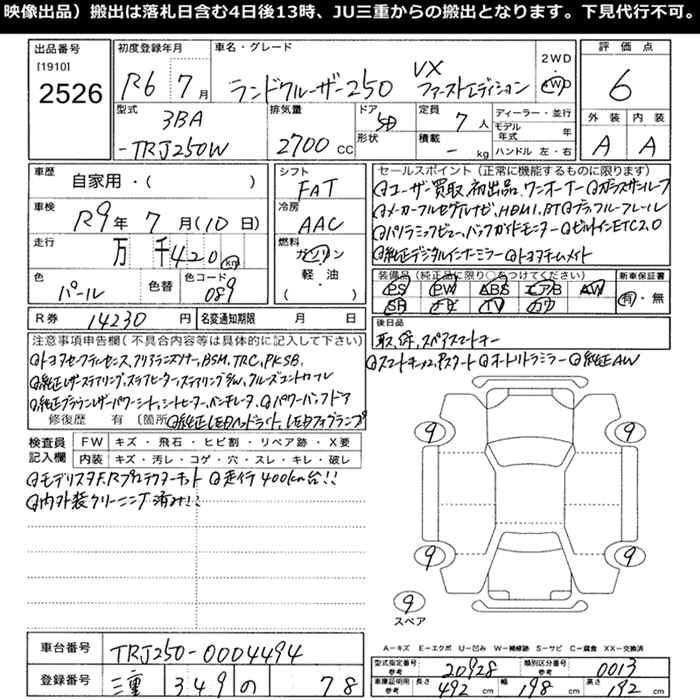 映像出品）搬出は落札日含む4日後13時、JU三重からの搬出となります。下見代行不可。
出品番号 初度登録年月 車名・グレード 評価点
[1910] 2WD
2526 R6年 7月 ランドクルーザー250 VX ファーストエディション 4WD 6
型式 排気量 ドア 定員 ディーラー・並行 外装 内装
3BA 5D 7人 モデル年式 年
-TRJ250W 2700 CC 形状 積載 - kg ハンドル 左・右 A A
車歴 シフト セールスポイント（正常に機能するものに限ります）
自家用・( ) FAT ◎ユーザー買取、初出品、ワンオーナー ◎ガラスサンルーフ
車検 冷房 ◎メーカーフルセグナビ、HDMI、BT ◎ブラックルーフレール
R9年 7月(10日) AAC ◎パノラミックビュー、バックガイドモニター ◎ビルトインETC2.0
走行 燃料 ◎純正デジタルインナーミラー ◎トヨタチームメイト
万 千420 km ガソリン
色 色替 色コード 軽・油 装備品（純正品に限り○をつけてください） 新車保証書
パール 089 ( ) PS PW ABS エアB AW 有・無
SR ナビ TV カワ
R券 14230円 名変通知期限 月 日 後日品
注意事項申告欄（不具合内容等は具体的に記入して下さい） 取、保、スペアスマートキー
◎トヨタセーフティセンス、クリアランスソナー、BSM、TRC、PKSB、 ◎スマートキー×2、Pスタート ◎オートリトラミラー ◎純正AW
◎純正レザーステアリング、ステアヒーター、ステアリングリモコン、クルーズコントロール
◎純正ブラウンレザーパワーシート、シートヒーター、ベンチレーター、◎パワーバックドア
修復歴 有 (箇所 ◎純正LEDヘッドライト、LEDフォグランプ
検査員記入欄 FW キズ・飛石・ヒビ割・リペア跡・X要
内装 キズ・汚レ・コゲ・穴・スレ・キレ・破レ
◎モデリスタF.Rプロテクターキット ◎走行400km台!!
◎内外装クリーニング済み!!
9 9
9 9
9
スペア
A－キズ E－エクボ U－凹み W－補修跡 S－サビ C－腐食 XX－交換済
車台番号 TRJ250-0004494
型式指定番号 参考 20928 類別区分番号 参考 0013
登録番号 三重 349 の 78
車庫証明用 参考 長さ 492 cm 幅 198 cm 高さ 192 cm